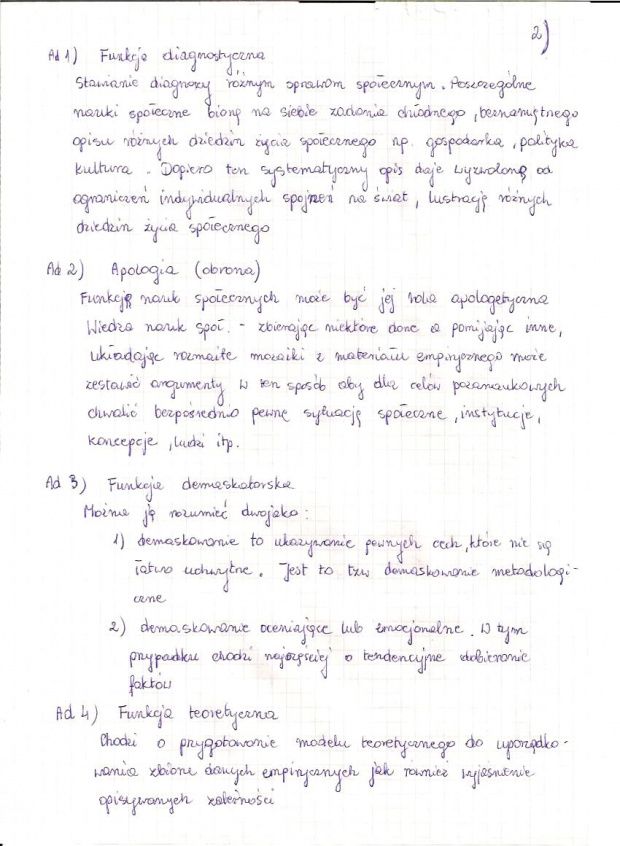 2)
Ad 1) Funkcja diagnostyczna
Stawianie diagnozy różnym sprawom społecznym. Poszczególne
nauki społeczne biorą na siebie zadania chłodnego, beznamiętnego
opisu różnych dziedzin życia społecznego np. gospodarka, polityka
kultura. Dopiero ten systematyczny opis daje wyzwoloną od
ograniczeń indywidualnych spojrzeń na świat, lustrację różnych
dziedzin życia społecznego
Ad 2) Apologia (obrona)
Funkcją nauk społecznych może być jej rola apologetyczna
Wiedza nauk społ. - zbierając niektóre dane a pomijając inne,
układając rozmaite mozaiki z materiału empirycznego może
zestawić argumenty w ten sposób aby dla celów pozanaukowych
chwalić bezpośrednio pewne sytuację społeczne, instytucje,
koncepcje, ludzi itp.
Ad 3) Funkcja demaskatorska
Można ją rozumieć dwojako:
1) demaskowanie to ukazywanie pewnych cech, które nie są
łatwo uchwytne. Jest to tzw demaskowanie metodologi-
czne
2) demaskowanie oceniające lub emocjonalne. W tym
przypadku chodzi najczęściej o tendencyjne dobieranie
faktów
Ad 4) Funkcja teoretyczna
Chodzi o przygotowanie modelu teoretycznego do uporządko-
wania zbioru danych empirycznych jak również wyjaśnienie
opisywanych zależności